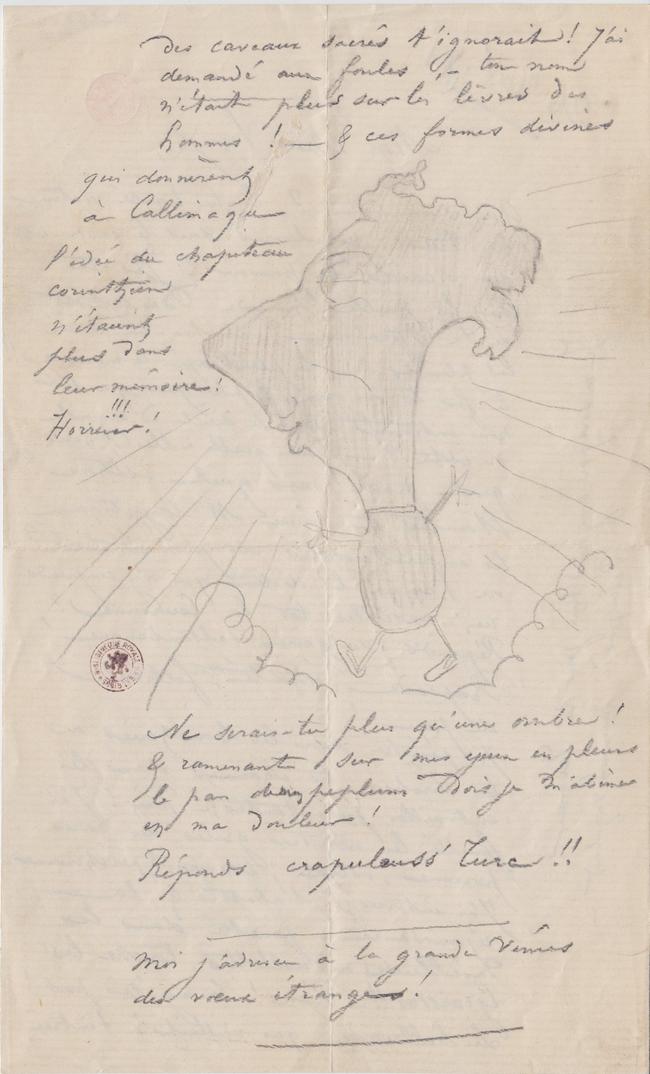 des caveaux sacrés t'ignorait ! J'ai
demandé aux foules , – ton nom
n'était plus sur les lèvres des
hommes ! — & ces formes divines
qui donnèrent
à Callimaque
l'idée du chapiteau
corinthien
n'étaient
plus dans
leur mémoire !
Horreur !!!!
Ne serais-tu plus qu'une ombre !
& ramenant sur mes yeux en pleurs
le pan de mon peplum Dois je m'abîmer
en ma douleur !
Réponds crapuleuss' Turc !!
Moi j'adresse à la grande Vénus
des vœux étranges !